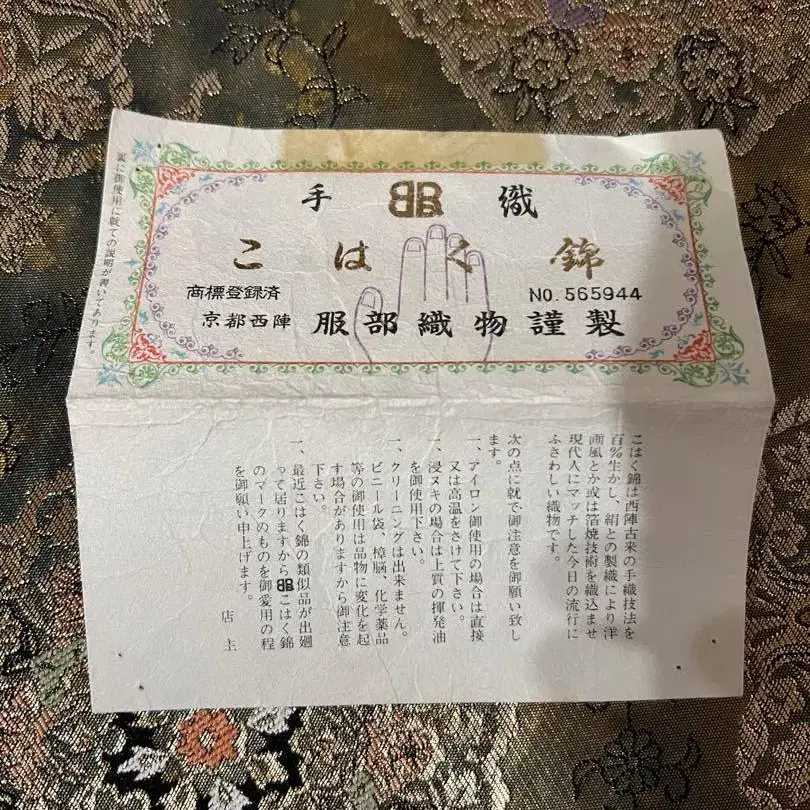 手織
こはく錦
商標登録済 NO. 565944
京都西陣 服部織物謹製
裏に御使用に就ての説明が書いてあります。
こはく錦は西陣古来の手織技法を
百%生かし、絹との製織により洋
画風とか或は箔焼技術を織込ませ
現代人にマッチした今日の流行に
ふさわしい織物です。
次の点に就で御注意を御願い致し
ます。
一、アイロン御使用の場合は直接
又は高温をさけて下さい。
一、浸ヌキの場合は上質の揮発油
を御使用下さい。
一、クリーニングは出来ません。
ビニール袋、樟脳、化学薬品
等の御使用は品物に変化を起
す場合がありますから御注意
下さい。
一、最近こはく錦の類似品が出廻
って居りますからこはく錦
のマークのものを御愛用の程
を御願い申上げます。
店主